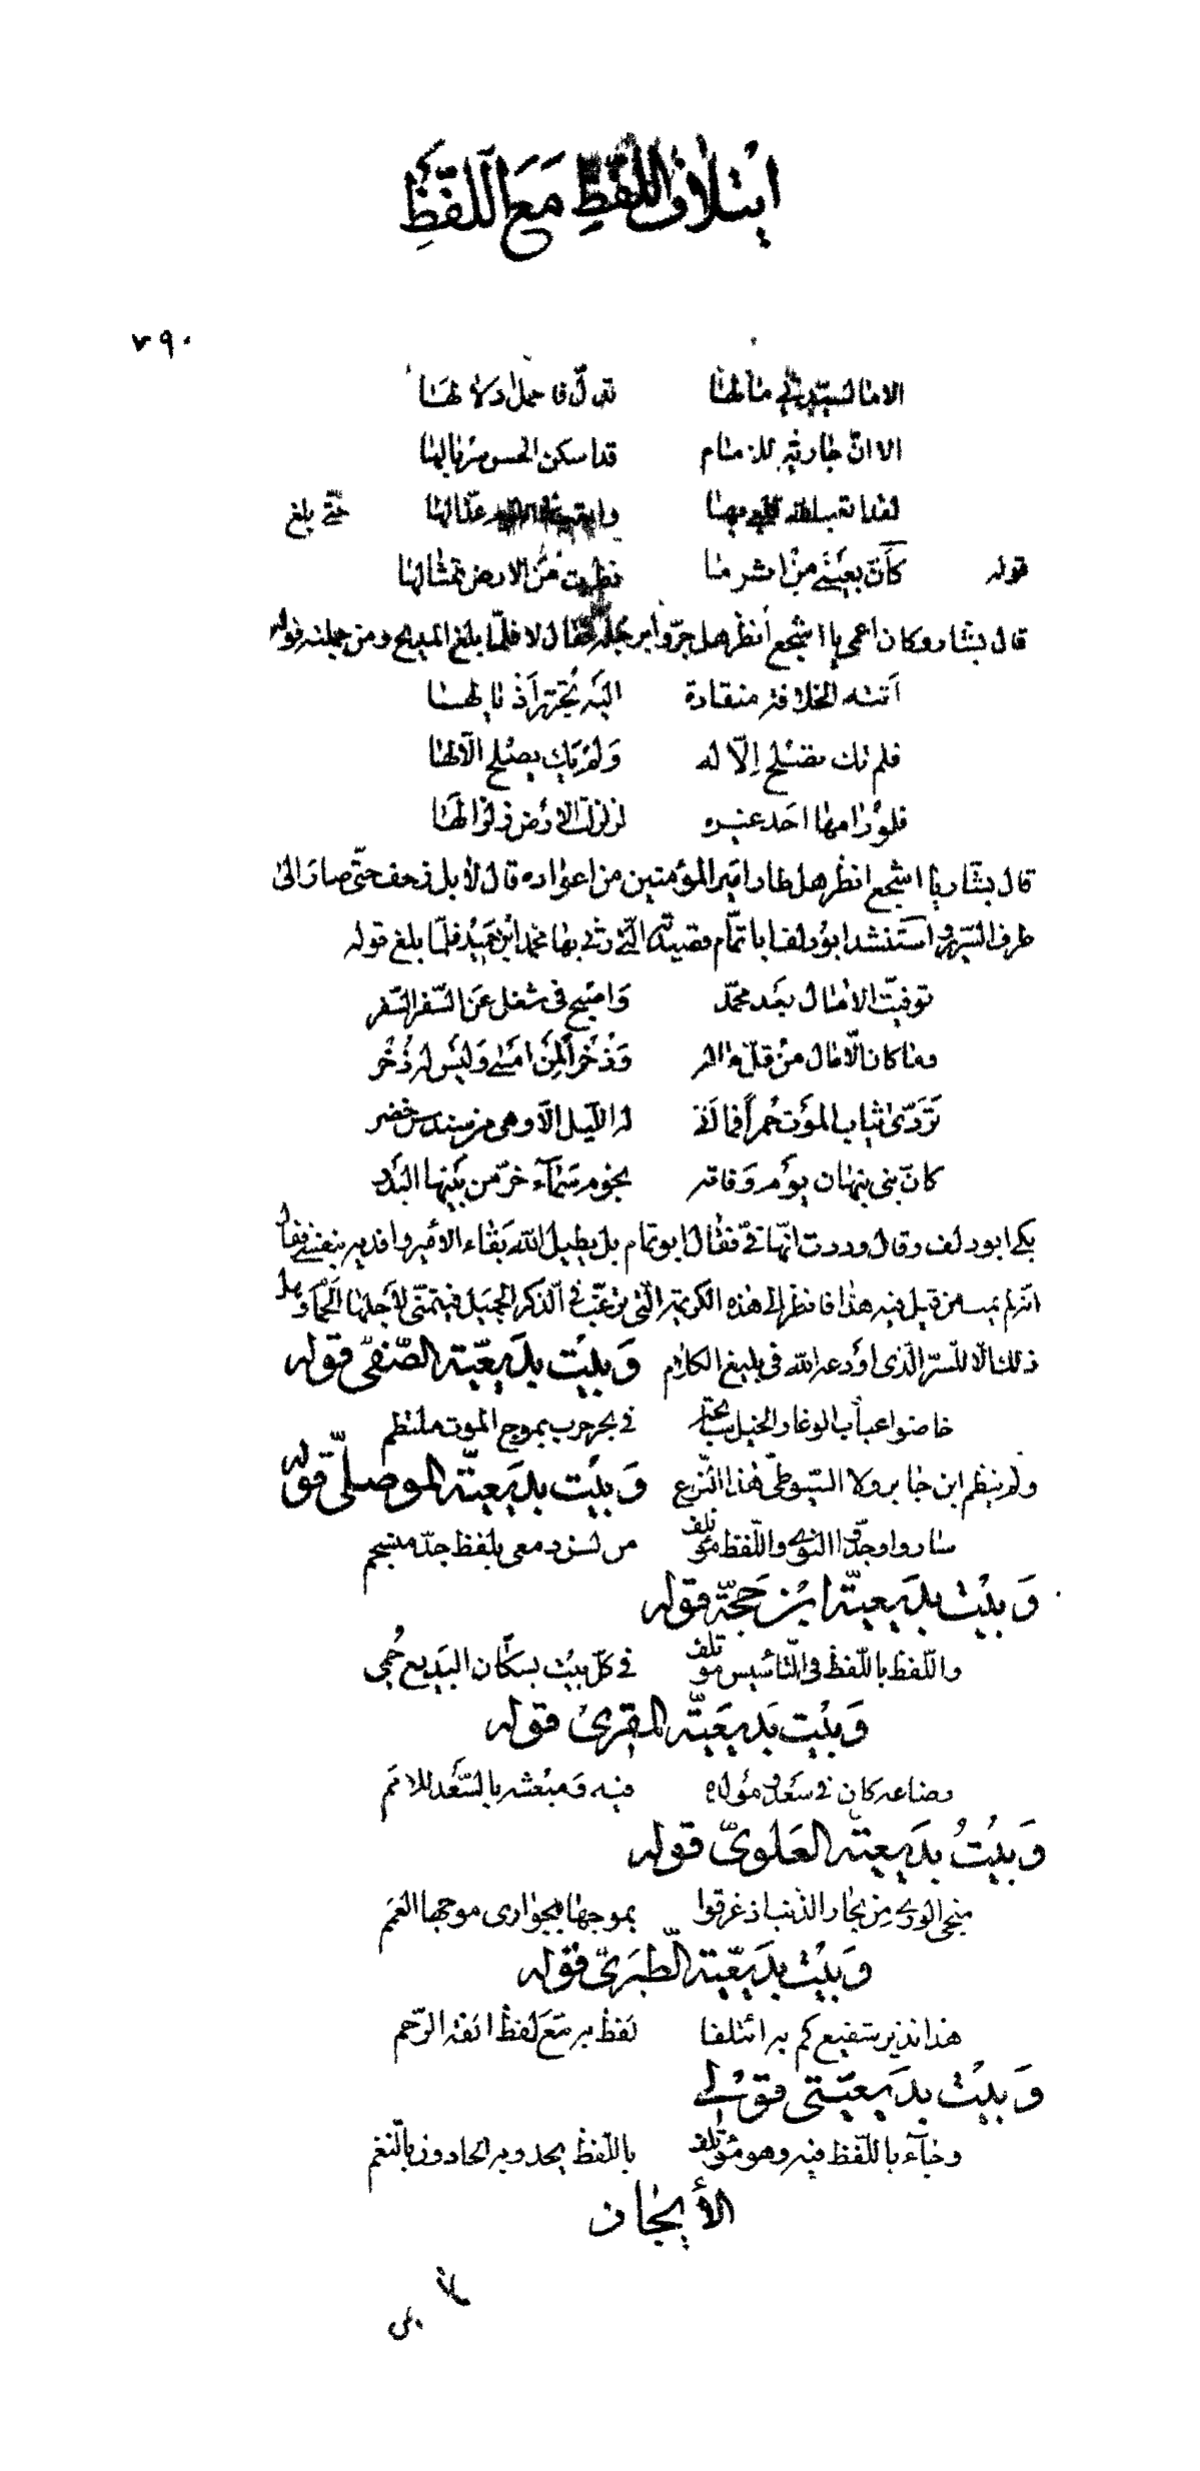 ايتلاف اللفظ مع اللفظ
٧٩٠
الا ما لسيدتي ما لها تدل فاحمل ادلالها
الا ان جارية للامام قد اسكن الحسن سربالها
لقد اتعب الله قلبي بها واتعب عذالها حتى بلغ
قوله كأن بعيني من اين ما نظرت من الارض تمثالها
قال بشار وكان اعمى يا اشجع أنظر هل جروا برجله فقال لا فلما بلغ المديح ومن جملته قوله
أتته الخلافة منقادة اليه تجرر أذيالها
فلم تك تصلح إلا له ولم يك يصلح الا لها
فلو رامها احد غيره لزلزلت الأرض زلزالها
قال بشار يا اشجع انظر هل طار امير المؤمنين من اعواده قال لا بل زحف حتى صار الى
طرف السرير واستنشد ابو دلف ابا تمام قصيدته التي رثى بها محمد ابن حميد فلما بلغ قوله
توفيت الامال بعد محمد واصبح في شغل عن السفر السفر
وما كان الا مال من قل ماله وذخرا لمن امسى وليس له ذخر
تردى ثياب الموت حمرا فما أتى له الليل الا وهي من سندس خضر
كان بنى نبهان يوم وفاته نجوم سماء خر من بينها البدر
بكى ابو دلف وقال وددت انها في فقال ابو تمام بل يطيل الله بقاء الأمير وافديه بنفسي فقال
انه لم يمت من قيل فيه هذا فانظر الى هذه الكريمة التي ترغب في الذكر الجميل فيتمنى لأجلها الحمام وهل
ذلك الا للسر الذى اودعه الله في بليغ الكلام وبيت بديعية الصفي قوله
خاضوا عباب الوغا والخيل سابحة في بحر حرب بموج الموت ملتطم
ولم ينظم ابن جابر ولا السيوطى هذا النوع وبيت بديعية الموصلي قوله
ساروا وجدوا النوى واللفظ مؤتلف من لسن دمعى بلفظ جد منسجم
وبيت بديعية ابن حجة قوله
واللفظ باللفظ في التأسيس مؤتلف في كل بيت بسكان البديع حمى
وبيت بديعية المقرى قوله
وضاعه كان في سعد ومولده فيه ومبعثه بالسعد للامم
وبيت بديعية العلوي قوله
منجى الورى من بحار الذنب اذ غرقوا بموجها بجوارى موجها العمم
وبيت بديعية الطبري قوله
هذا نذير شفيع كم به ائتلفا لفظ به مع لفظ انفة الرحم
وبيت بديعيتى قولي
وجاء باللفظ فيه وهو مؤتلف باللفظ يحدو به الحادون بالنغم
الأيجاز